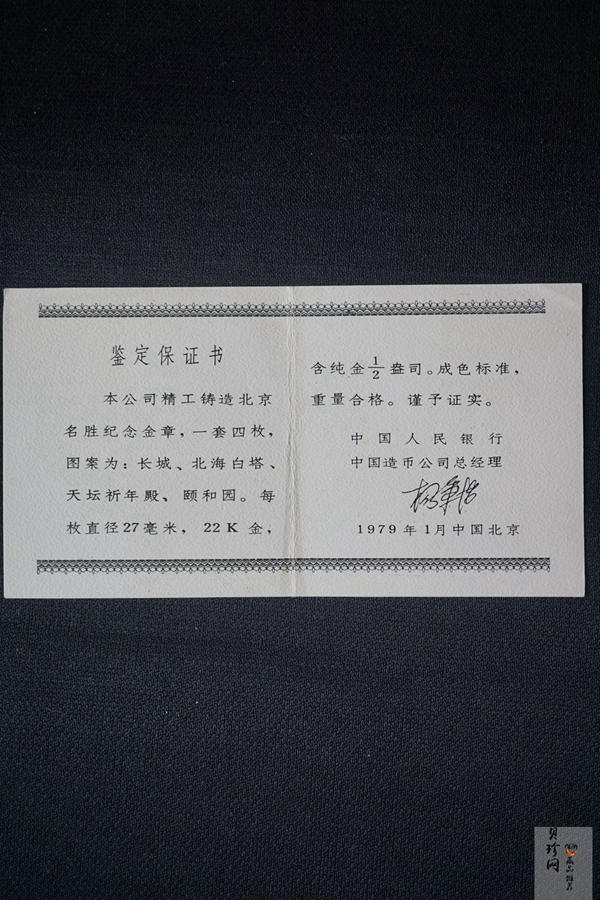 鉴定保证书
本公司精工铸造北京
名胜纪念金章，一套四枚，
图案为：长城、北海白塔、
天坛祈年殿、颐和园。每
枚直径27毫米，22K金，
含纯金1/2盎司。成色标准，
重量合格。谨予证实。
中国人民银行
中国造币公司总经理
杨秉超
1979年1月中国北京
贝珍网